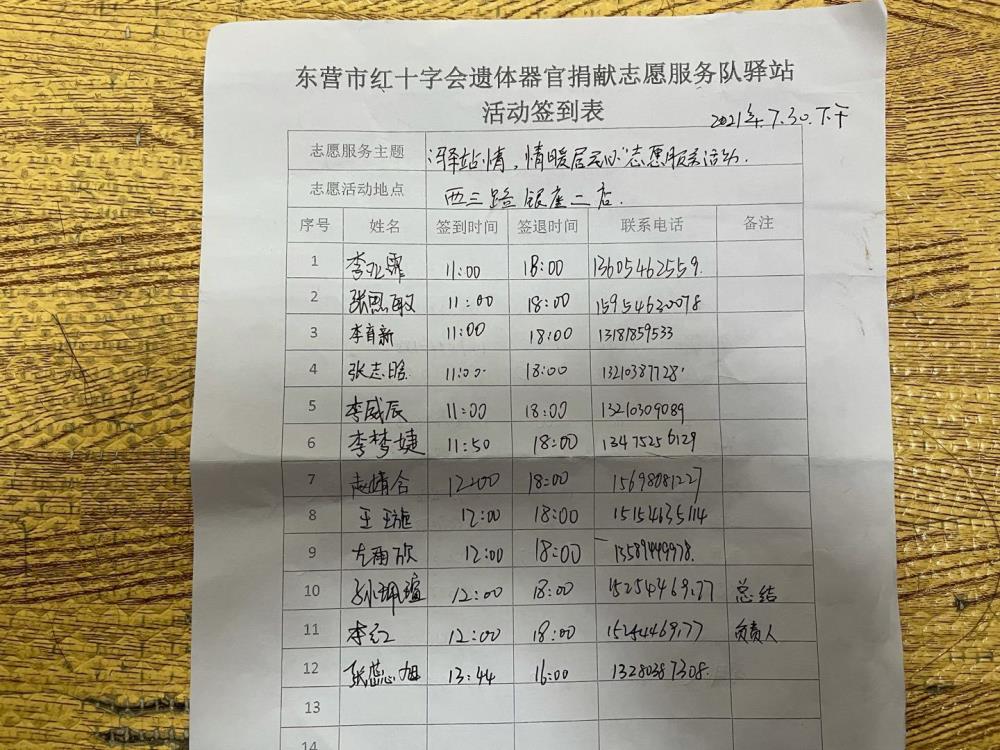 东营市红十字会遗体器官捐献志愿服务队驿站
活动签到表
2021年.7.30.下午
志愿服务主题 "驿站情，情暖居民心"志愿服务活动.
志愿活动地点 西三路银座二店.
序号 姓名 签到时间 签退时间 联系电话 备注
1 11:00 18:00 13605462559.
2 张思敏 11:00 18:00 15954630078
3 李育新 11:00 18:00 13181859533
4 张志晗 11:00 18:00 13210387728.
5 李威辰 11:00 18:00 13210309089
6 李梦婕 11:50 18:00 13475256129
7 赵婧含 12:00 18:00 15698081227
8 王 12:00 18:00 15154635114
9 左雨欣 12:00 18:00 13589449978.
10 12:00 18:00 总结
11 李红 12:00 18:00 负责人
12 张蕊旭 13:44 16:00 13280387308.
13
14